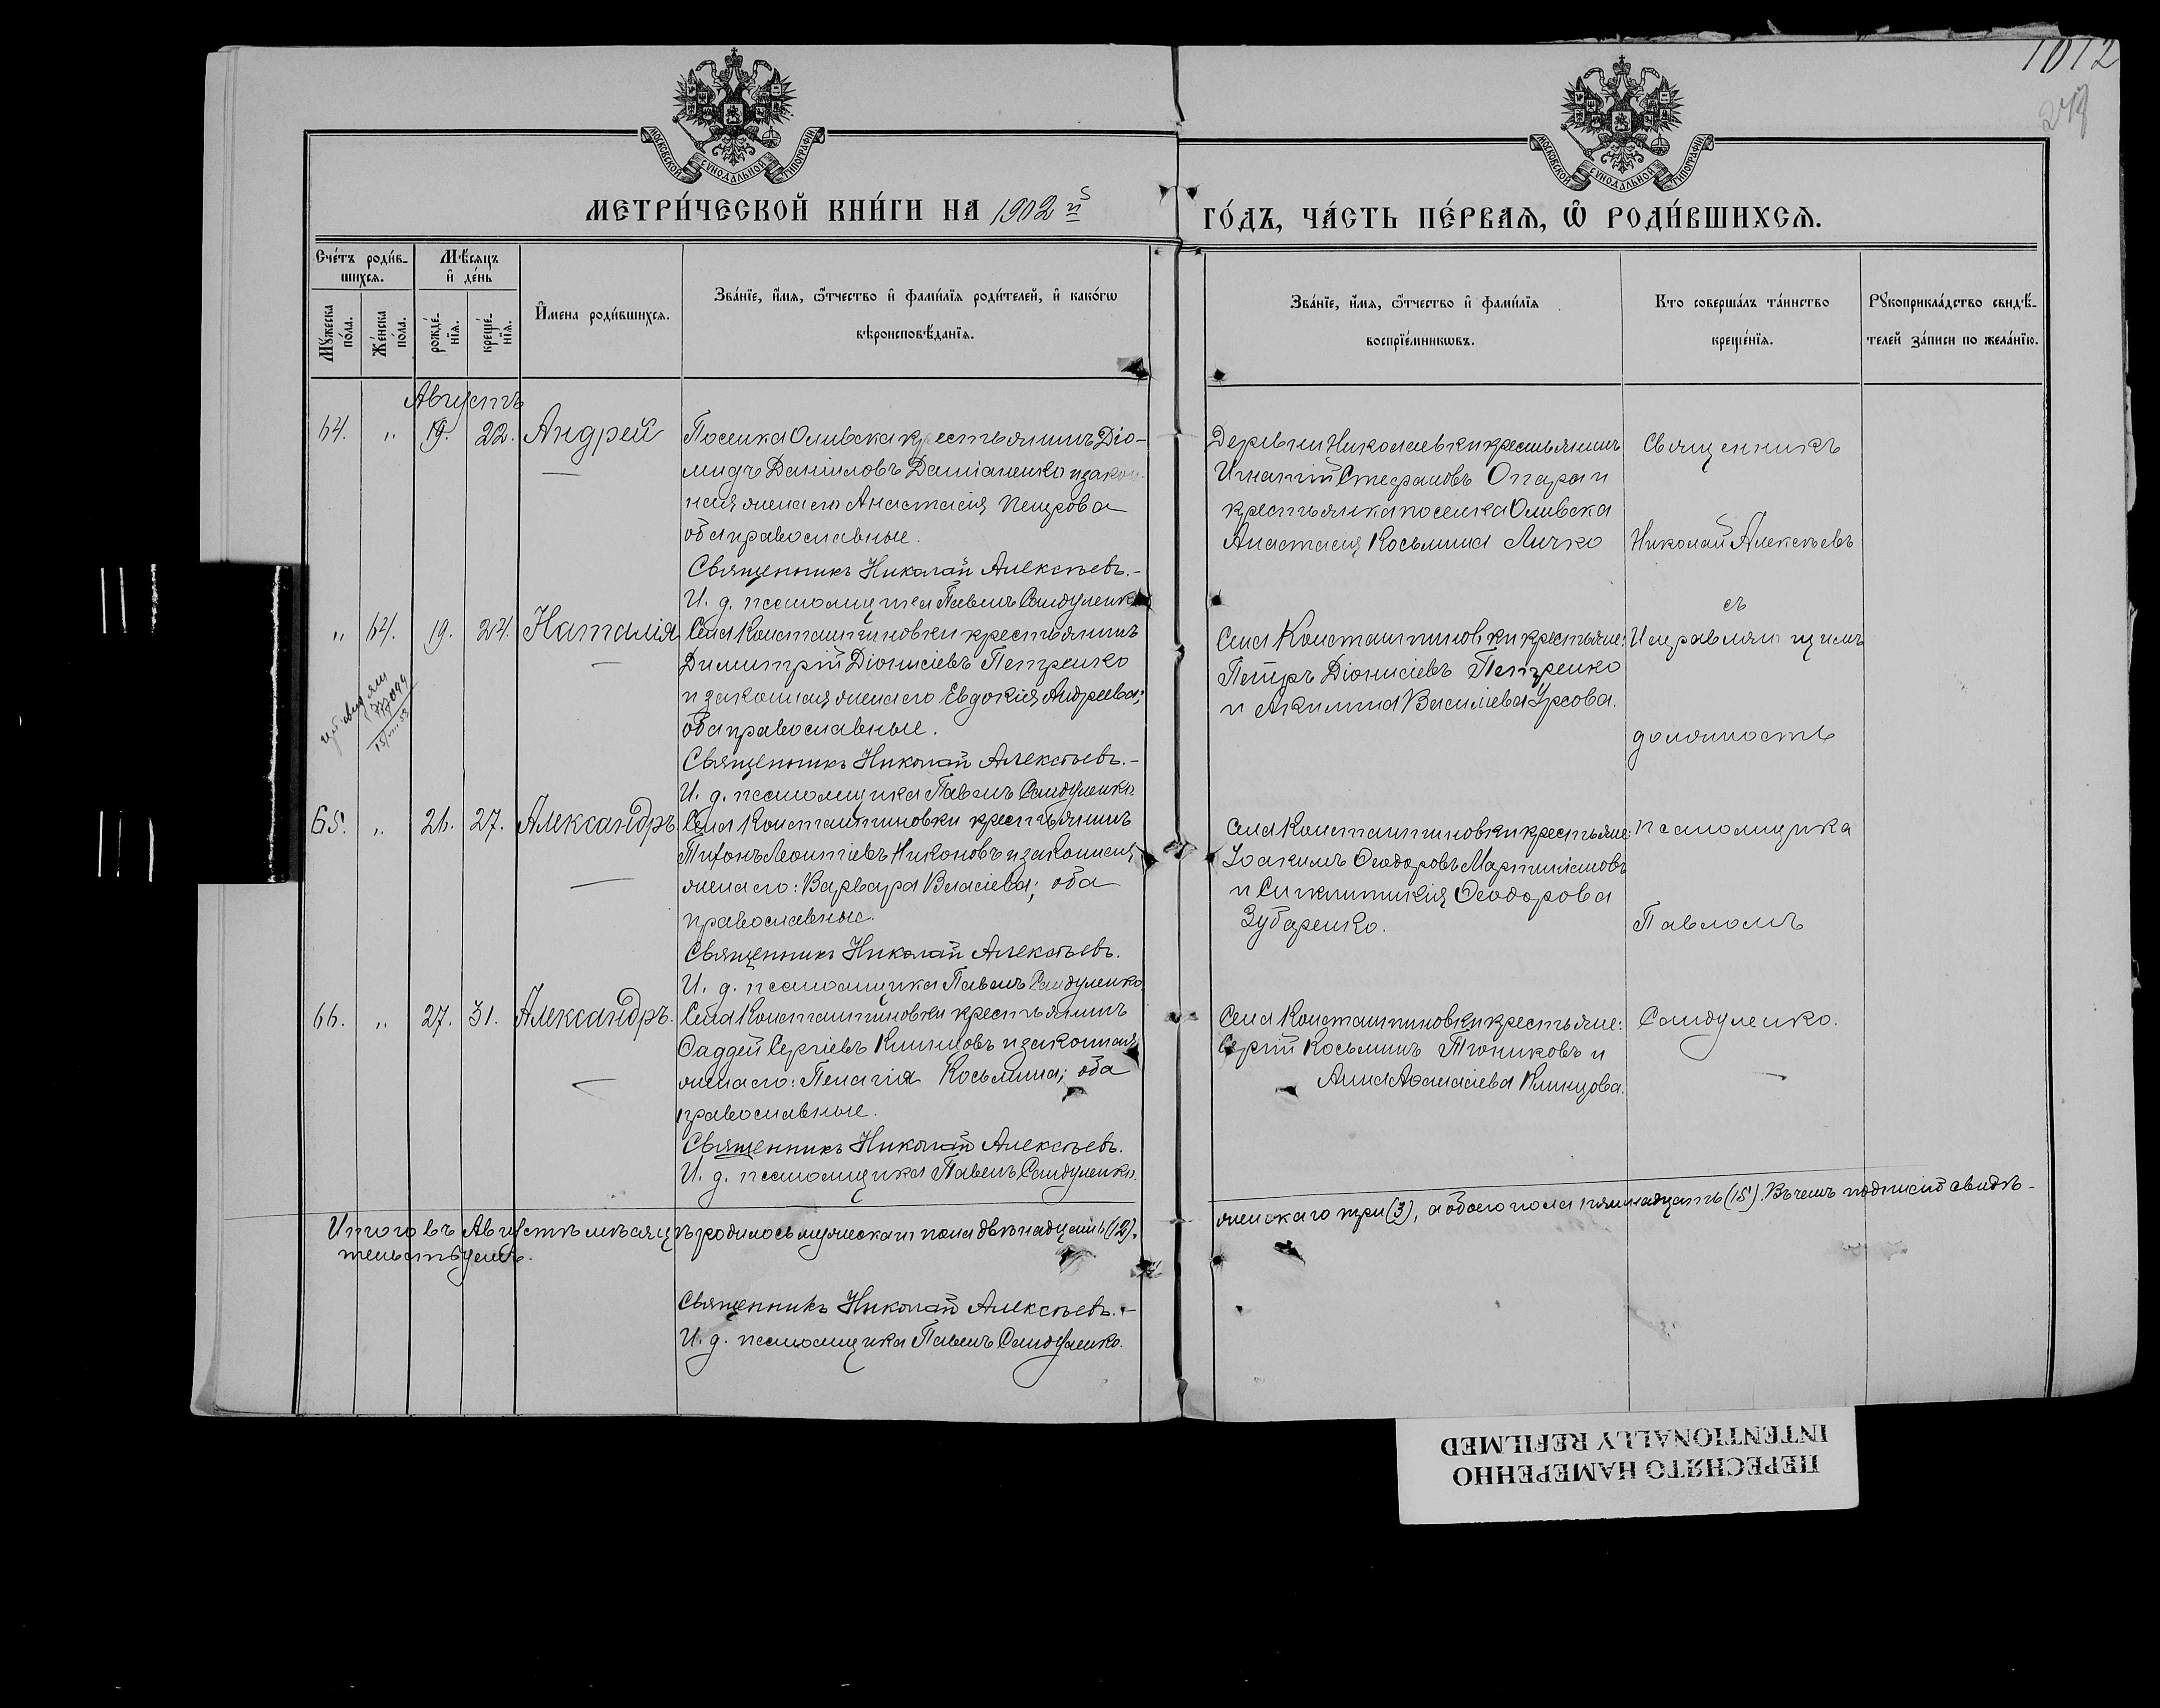 1012
МОСКОВСКОЙ СѴНОДАЛЬНОЙ ТИПОГРАФІИ
МОСКОВСКОЙ СѴНОДАЛЬНОЙ ТИПОГРАФІИ
МЕТРИ́ЧЕСКОЙ КНИ́ГИ НА 1902 й
ГО́ДЪ, ЧА́СТЬ ПЕ́РВАѦ, Ѡ҆ РОДИ́ВШИХСѦ.
Сче́тъ роди́в-
шихсѧ.
Мѣ́сѧцъ
и҆ де́нь
Мꙋ́жеска
по́ла.
Же́нска
по́ла.
рожде́-
нїѧ.
креще́-
нїѧ.
И҆мена роди́вшихсѧ.
Зва́нїе, и҆́мѧ, ѻ҆́тчество и҆ фами́лїѧ роди́телей, и҆ како́гѡ
вѣроисповѣ́данїѧ.
Зва́нїе, и҆́мѧ, ѻ҆́тчество и҆ фами́лїѧ
воспрїе́мникѡвъ.
Кто соверша́лъ та́инство
креще́нїѧ.
Рꙋкоприкла́дство свидѣ́-
телей за́писи по жела́нїю.
Августъ
64. " 19. 22. Андрей
Поселка Ольвска крестьянинъ Діо-
мидъ Даниловъ Даміаненко и закон-
ная жена его Анастасія Петрова
оба православные.
Священникъ Николай Алексѣевъ.-
И. д. псаломщика Павелъ Сандуленко
Деревни Николаевки крестьянинъ
Игнатій Стефановъ Опара и
крестьянка поселка Ольвска
Анастасія Косьмина Личко
Священникъ
Николай Алексѣевъ
" 64. 19. 24. Наталія
Села Константиновки крестьянинъ
Димитрій Діонисіевъ Петренко
и законная жена его Евдокія Андреева;
оба православные.
Священникъ Николай Алексѣевъ.-
И. д. псаломщика Павелъ Сандуленко
Села Константиновки крестьяне:
Петръ Діонисіевъ Петренко
и Акилина Василіева Урсова.
съ
Исправляющимъ
должность
65. " 26. 27. Александръ.
Села Константиновки крестьянинъ
Тихонъ Леонтіевъ Никоновъ и законная
жена его: Варвара Власіева; оба
православные.
Священникъ Николай Алексѣевъ.
И. д. псаломщика Павелъ Сандуленко.
Села Константиновки крестьяне:
Іоакимъ Ѳеодоровъ Мартиніановъ
и Синклитикія Ѳеодорова
Зубаренко.
псаломщика
Павломъ
66. " 27. 31. Александръ.
Села Константиновки крестьянинъ
Ѳаддей Сергіевъ Клинцовъ и законная
жена его: Пелагія Косьмина; оба
православные.
Священникъ Николай Алексѣевъ.
И. д. псаломщика Павелъ Сандуленко.
Села Константиновки крестьяне:
Сергій Косьминъ Тюниковъ и
Анна Аѳанасіева Клинцова.
Сандуленко.
Итого въ Августѣ мѣсяцѣ родилось мужескаго пола двѣнадцать (12),
женскаго три (3), а обоего пола пятнадцать (15). Въ чемъ подписью свидѣ-
тельствуемъ.
Священникъ Николай Алексѣевъ.-
И. д. псаломщика Павелъ Сандуленко.
ПЕРЕСНЯТО НАМЕРЕННО
INTENTIONALLY REFILMED